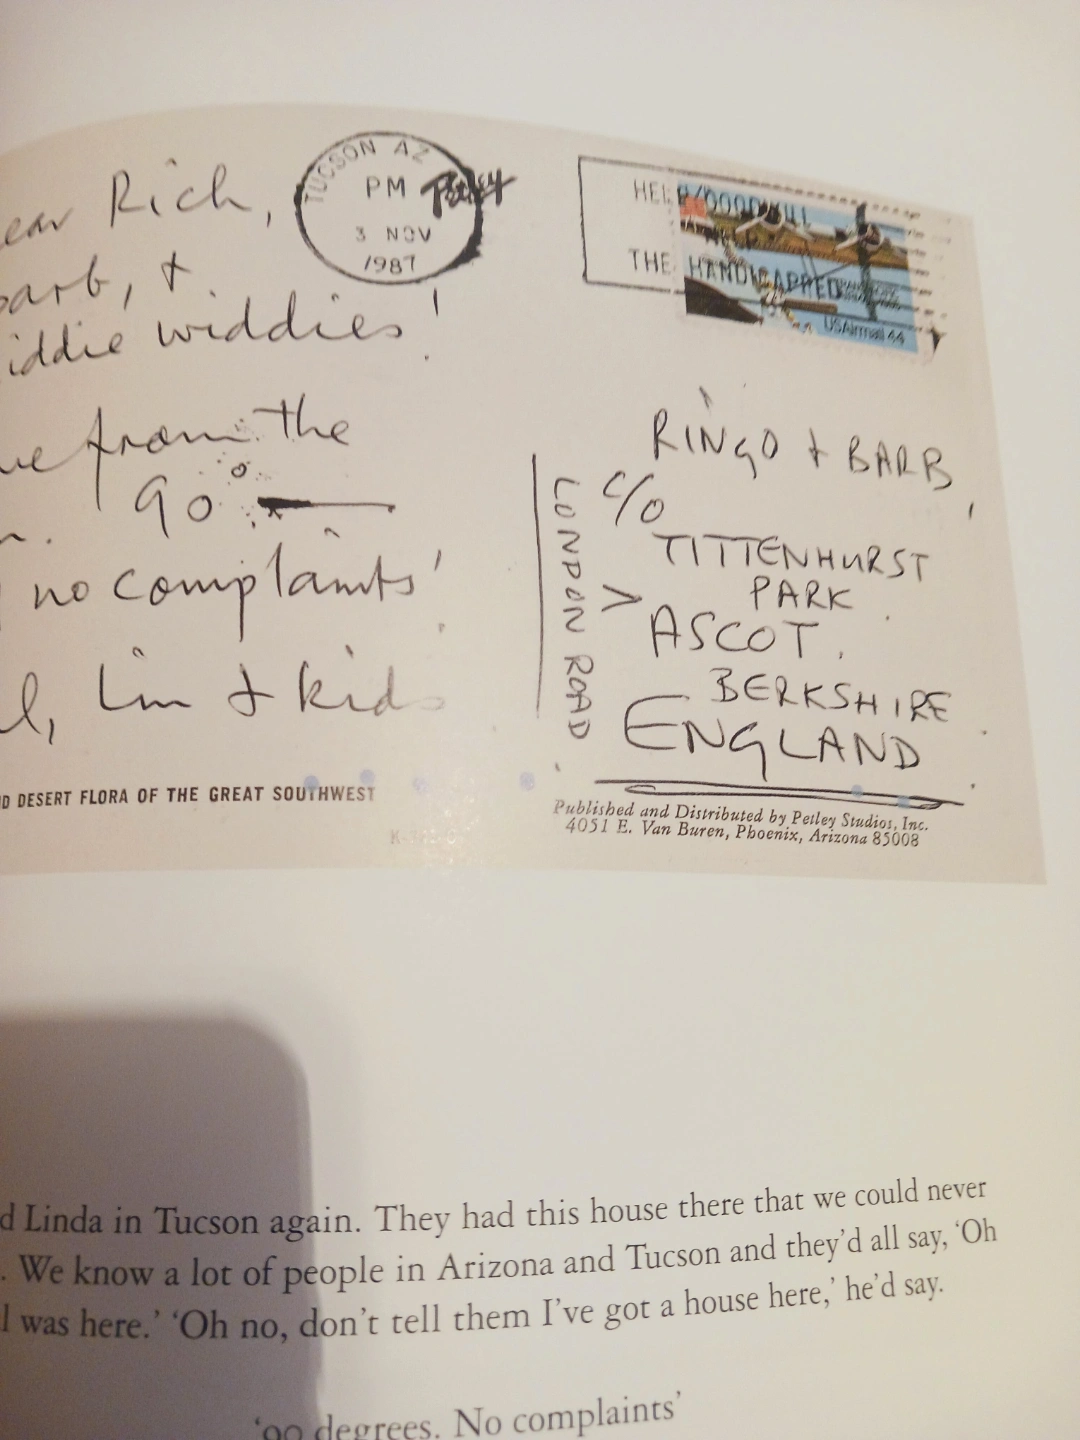 Rich,
TUCSON AZ
PM
3 NOV
1987
Petley
HELP GOODWILL
HELP
THE HANDICAPPED
USAirmail 44
arb, +
iddie widdies!
from the
90°
no complaints'
l, Lin + kids
RINGO + BARB,
C/O
TITTENHURST
PARK
LONDON ROAD >
ASCOT.
BERKSHIRE
ENGLAND
D DESERT FLORA OF THE GREAT SOUTHWEST
Published and Distributed by Petley Studios, Inc.
4051 E. Van Buren, Phoenix, Arizona 85008
d Linda in Tucson again. They had this house there that we could never
. We know a lot of people in Arizona and Tucson and they'd all say, 'Oh
l was here.' 'Oh no, don't tell them I've got a house here,' he'd say.
'90 degrees. No complaints'